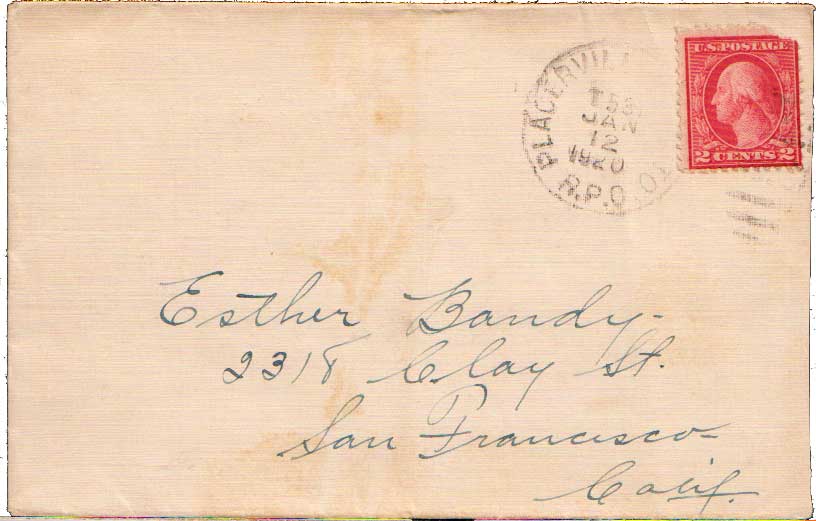 U.S. POSTAGE
2 CENTS 2
PLACERVIL
T53
JAN
12
1920
R.P.O.
Esther Bandy.
2318 Clay St.
San Francisco
Calif.